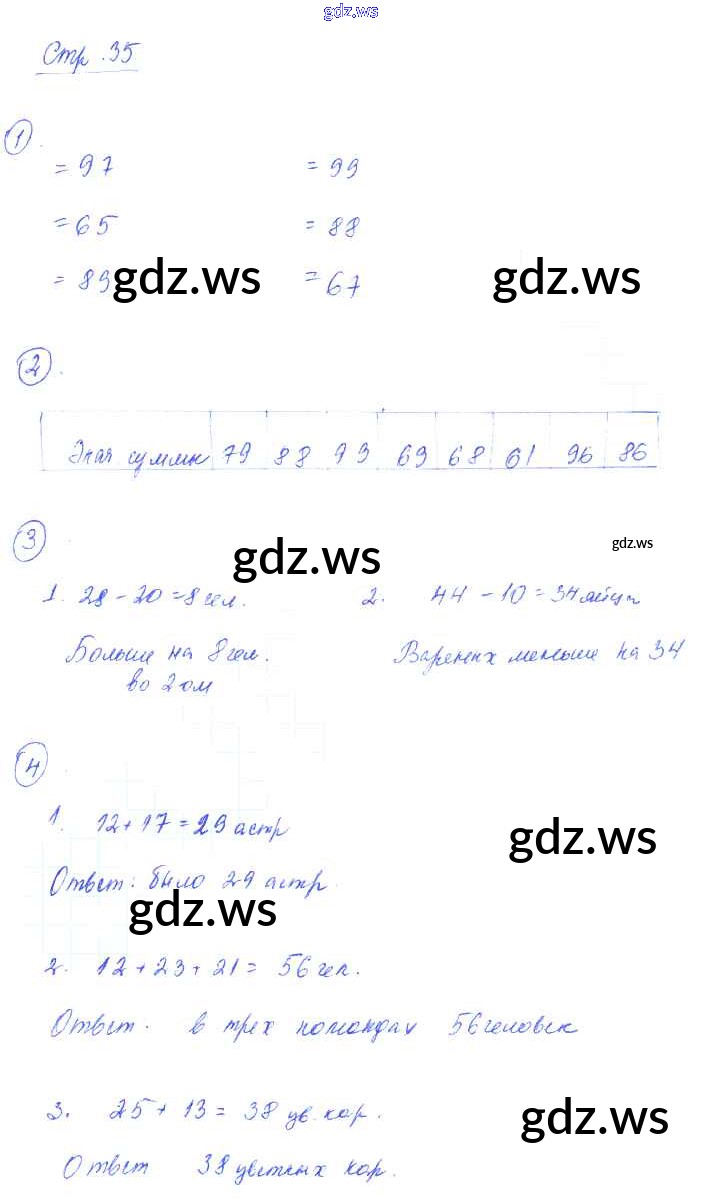 gdz.ws
Стр. 35
1.
= 97 = 99
= 65 = 88
= 89 = 67
gdz.ws gdz.ws
2.
Знач суммы 79 88 93 69 68 61 96 86
3
gdz.ws gdz.ws
1. 28 - 20 = 8 чел. 2. 44 - 10 = 34 яйца
Больше на 8 чел. Вареных меньше на 34
во 2 ом
4
1. 12 + 17 = 29 астр
gdz.ws
Ответ: было 29 астр.
gdz.ws
2. 12 + 23 + 21 = 56 чел.
Ответ. в трех командах 56 человек
3. 25 + 13 = 38 цв. кар.
gdz.ws
Ответ 38 цветных кар.